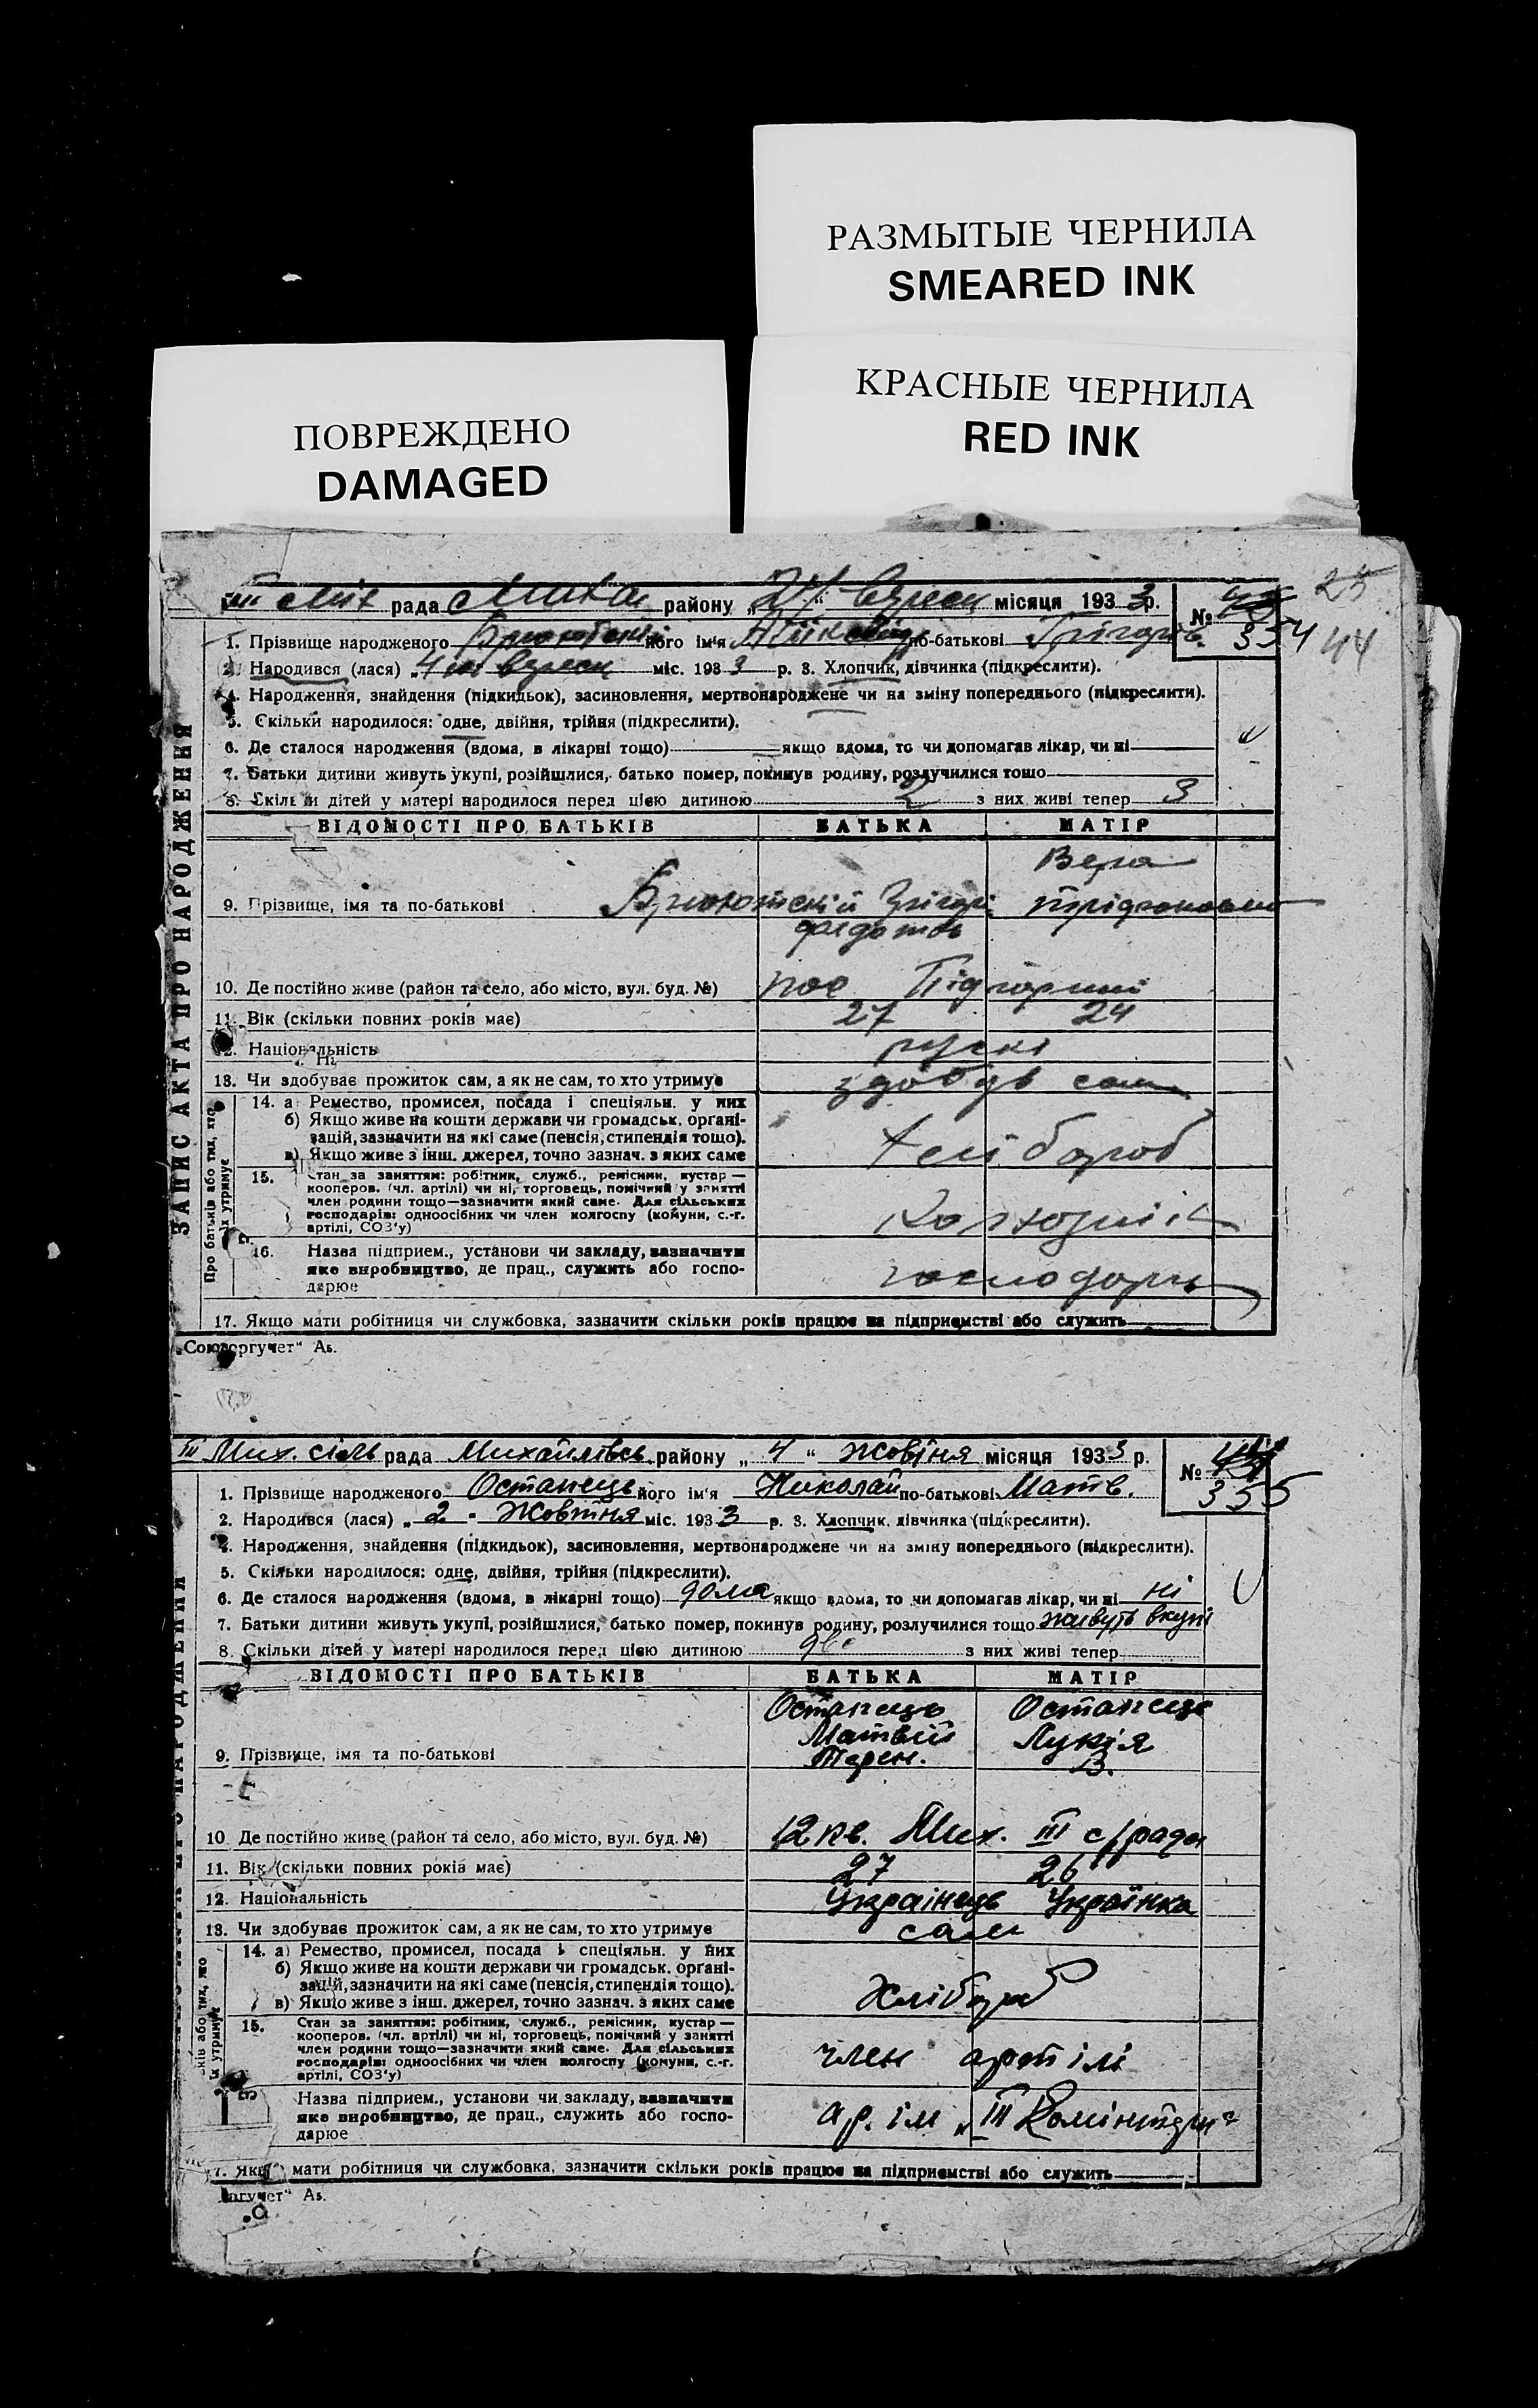 РАЗМЫТЫЕ ЧЕРНИЛА
SMEARED INK
КРАСНЫЕ ЧЕРНИЛА
RED INK
ПОВРЕЖДЕНО
DAMAGED
25
44
ЗАПИС АКТА ПРО НАРОДЖЕННЯ
III рада району „24“ вересн місяця 1933 р. № 354
1. Прізвище народженого його ім'я по-батькові Грігорів.
2. Народився (лася) „4 вересн міс. 1933 р. 3. Хлопчик, дівчинка (підкреслити).
4. Народження, знайдення (підкидьок), засиновлення, мертвонароджене чи на зміну попереднього (підкреслити).
5. Скільки народилося: одне, двійня, трійня (підкреслити).
6. Де сталося народження (вдома, в лікарні тощо) якщо вдома, то чи допомагав лікар, чи ні
7. Батьки дитини живуть укупі, розійшлися, батько помер, покинув родину, розлучилися тощо
8. Скільки дітей у матері народилося перед цією дитиною 2 з них живі тепер 3
ВІДОМОСТІ ПРО БАТЬКІВ БАТЬКА МАТІР
Вера
9. Прізвище, імя та по-батькові
10. Де постійно живе (район та село, або місто, вул. буд. №) пос
11. Вік (скільки повних років має) 27 24
12. Національність рускі
13. Чи здобуває прожиток сам, а як не сам, то хто утримує здобув сам
Про батьків або тих, хто їх утримує
14. а) Ремество, промисел, посада і спеціяльн. у них
б) Якщо живе на кошти держави чи громадськ. органі-
зацій, зазначити на які саме (пенсія, стипендія тощо).
в) Якщо живе з інш. джерел, точно зазнач. з яких саме
хлібороб
15. Стан за заняттям: робітник, служб., ремісник, кустар —
кооперов. (чл. артілі) чи ні, торговець, помічний у занятті
член родини тощо—зазначити який саме. Для сільських
господарів: одноосібних чи член колгоспу (комуни, с.-г.
артілі, СОЗ'у)
16. Назва підприєм., установи чи закладу, зазначити
яке виробництво, де прац., служить або госпо-
дарює
17. Якщо мати робітниця чи службовка, зазначити скільки років працює на підприємстві або служить
„Союзоргучет“ А₅.
III Мих. сіль рада Михайлівсь. району „4“ Жовтня місяця 1933 р. № 355
1. Прізвище народженого Останець його ім'я Николай по-батькові Матв.
2. Народився (лася) „2“ Жовтня міс. 1933 р. 3. Хлопчик, дівчинка (підкреслити).
4. Народження, знайдення (підкидьок), засиновлення, мертвонароджене чи на зміну попереднього (підкреслити).
5. Скільки народилося: одне, двійня, трійня (підкреслити).
6. Де сталося народження (вдома, в лікарні тощо) дома якщо вдома, то чи допомагав лікар, чи ні ні
7. Батьки дитини живуть укупі, розійшлися, батько помер, покинув родину, розлучилися тощо живуть вкупі
8. Скільки дітей у матері народилося перед цією дитиною з них живі тепер
ВІДОМОСТІ ПРО БАТЬКІВ БАТЬКА МАТІР
Останець Останець
Матвій Лукія
9. Прізвище, імя та по-батькові Терен. В.
10. Де постійно живе (район та село, або місто, вул. буд. №) 12 кв. Мих. III с/рада
11. Вік (скільки повних років має) 27 26
12. Національність Українець Українка
13. Чи здобуває прожиток сам, а як не сам, то хто утримує сам
14. а) Ремество, промисел, посада і спеціяльн. у них
б) Якщо живе на кошти держави чи громадськ. органі-
зацій, зазначити на які саме (пенсія, стипендія тощо).
в) Якщо живе з інш. джерел, точно зазнач. з яких саме
Хлібороб
15. Стан за заняттям: робітник, служб., ремісник, кустар —
кооперов. (чл. артілі) чи ні, торговець, помічний у занятті
член родини тощо—зазначити який саме. Для сільських
господарів: одноосібних чи член колгоспу (комуни, с.-г.
артілі, СОЗ'у)
член артілі
Назва підприєм., установи чи закладу, зазначити
яке виробництво, де прац., служить або госпо-
дарює
ар. ім „III Комінтерн“
17. Якщо мати робітниця чи службовка, зазначити скільки років працює на підприємстві або служить
оргучет“ А₅.